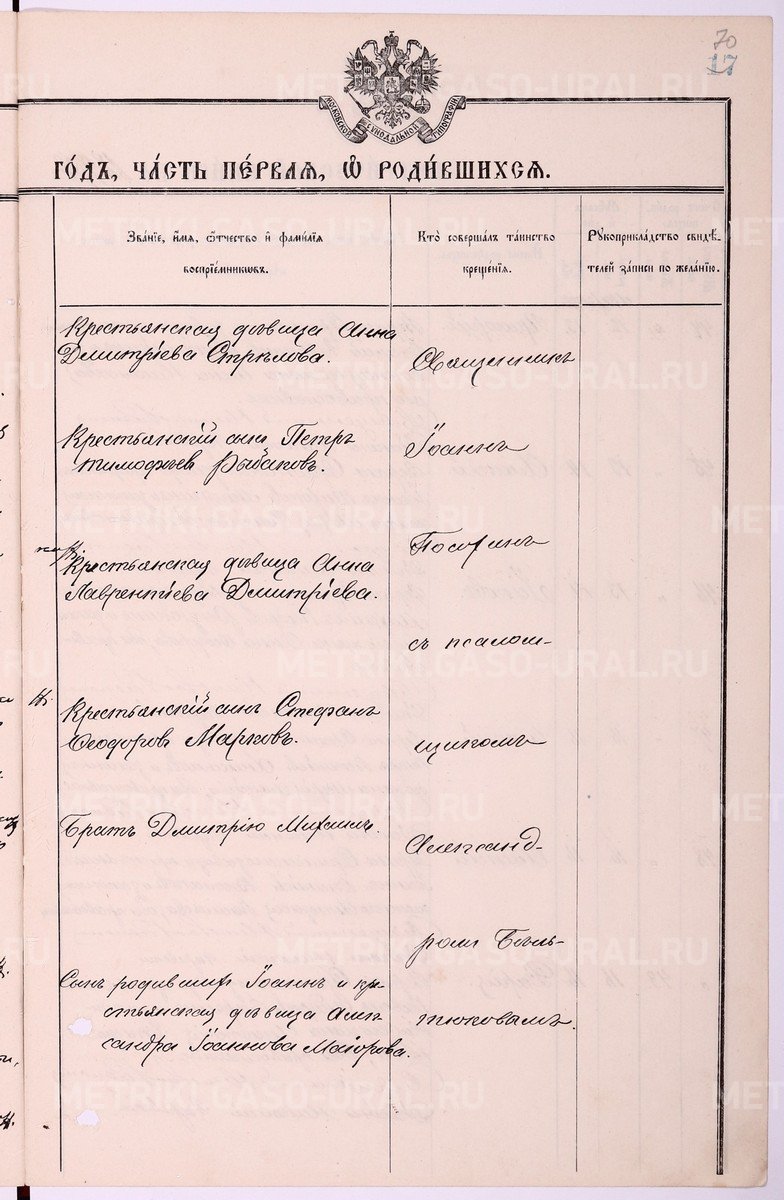 70
17
МОСКОВСКОЙ СѴНОДАЛЬНОЙ ТИПОГРАФІИ
ГО́ДЪ, ЧА́СТЬ ПЕ́РВАЯ, Ѽ РОДИ́ВШИХСЯ.
Зва́нїе, и҆́мя, ѻ҆́тчество и҆ фами́лїя
воспрїе́мникѡвъ.
Кто̀ соверша́лъ та́инство
креще́нїя.
Рꙋкоприкла́дство свидѣ́-
телей за́писи по жела́нїю.
Крестьянская дѣвица Анна
Дмитріева Стрѣлова.
Священникъ
Крестьянскій сынъ Петръ
Тимофѣевъ Рыбаковъ.
Іоаннъ
Крестьянская дѣвица Анна
Лаврентіева Дмитріева.
съ псалом-
Крестьянскій сынъ Стефанъ
Ѳеодоровъ Марковъ.
щикомъ
Братъ Дмитрію Михаилъ.
Александ-
ромъ
Сынъ родившихъ Іоаннъ и кре-
стьянская дѣвица Алек-
сандра Іоаннова Маіорова.
тюковымъ.
METRIKI.GASO-URAL.RU